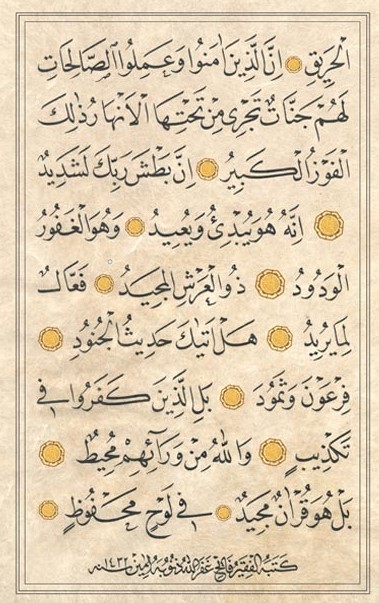 الْحَرِيقِ ۝ اِنَّ الَّذِينَ اٰمَنُوا وَعَمِلُوا الصَّالِحَاتِ
لَهُمْ جَنَّاتٌ تَجْرِى مِنْ تَحْتِهَا الْاَنْهَارُ ذٰلِكَ
الْفَوْزُ الْكَبِيرُ ۝ اِنَّ بَطْشَ رَبِّكَ لَشَدِيدٌ
۝ اِنَّهُ هُوَ يُبْدِئُ وَيُعِيدُ ۝ وَهُوَ الْغَفُورُ
الْوَدُودُ ۝ ذُو الْعَرْشِ الْمَجِيدُ ۝ فَعَّالٌ
لِمَا يُرِيدُ ۝ هَلْ اَتٰيكَ حَدِيثُ الْجُنُودِ ۝
فِرْعَوْنَ وَثَمُودَ ۝ بَلِ الَّذِينَ كَفَرُوا فِى
تَكْذِيبٍ ۝ وَاللّٰهُ مِنْ وَرَآئِهِمْ مُحِيطٌ ۝
بَلْ هُوَ قُرْاٰنٌ مَجِيدٌ ۝ فِى لَوْحٍ مَحْفُوظٍ ۝
كتبه الفقير غفر الله ذنوبه آمين سنه ١٤٣٢